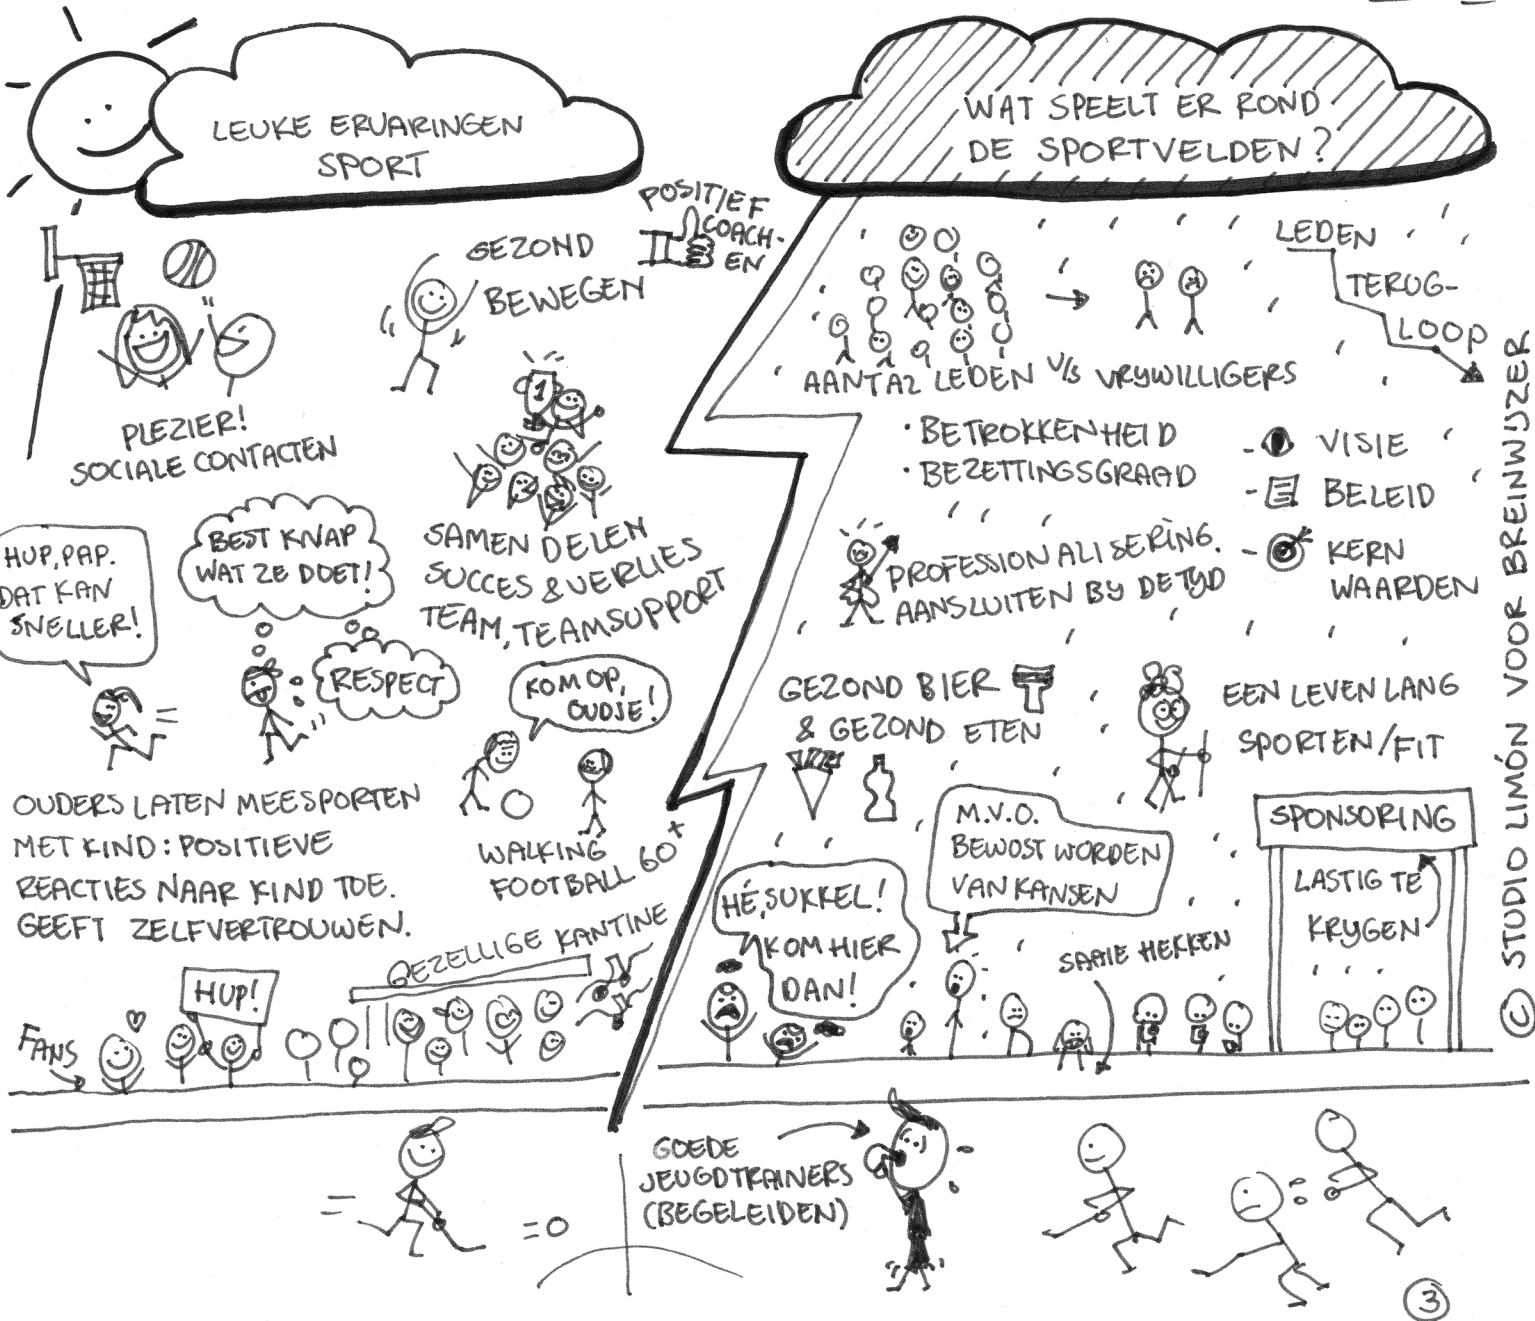 LEUKE ERVARINGEN
SPORT
POSITIEF
COACH-
EN
GEZOND
BEWEGEN
1
PLEZIER!
SOCIALE CONTACTEN
HUP, PAP.
DAT KAN
SNELLER!
BEST KNAP
WAT ZE DOET!
RESPECT
SAMEN DELEN
SUCCES & VERLIES
TEAM, TEAMSUPPORT
KOM OP,
OUDJE!
OUDERS LATEN MEESPORTEN
MET KIND: POSITIEVE
REACTIES NAAR KIND TOE.
GEEFT ZELFVERTROUWEN.
WALKING
FOOTBALL 60+
GEZELLIGE KANTINE
HUP!
FANS
WAT SPEELT ER ROND
DE SPORTVELDEN?
LEDEN
TERUG-
LOOP
AANTAL LEDEN v/s VRYWILLIGERS
• BETROKKENHEID
• BEZETTINGSGRAAD
- VISIE
- BELEID
- KERN
WAARDEN
PROFESSIONALISERING.
AANSLUITEN BY DE TYD
GEZOND BIER
& GEZOND ETEN
EEN LEVEN LANG
SPORTEN/FIT
M.V.O.
BEWUST WORDEN
VAN KANSEN
SPONSORING
LASTIG TE
KRYGEN
HÉ, SUKKEL!
KOM HIER
DAN!
SAAIE HEKKEN
GOEDE
JEUGDTRAINERS
(BEGELEIDEN)
3
© STUDIO LIMÓN VOOR BREINWIJZER